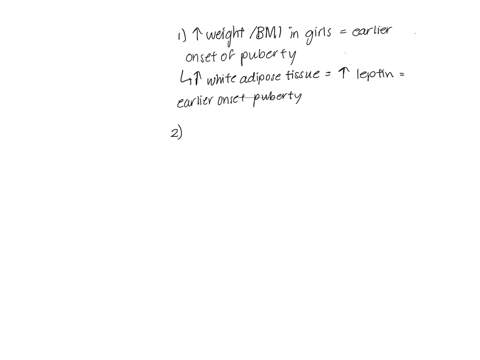 1) ↑ weight /BMI in girls = earlier
onset of puberty
↳↑ white adipose tissue = ↑ leptin =
earlier onset puberty
2)